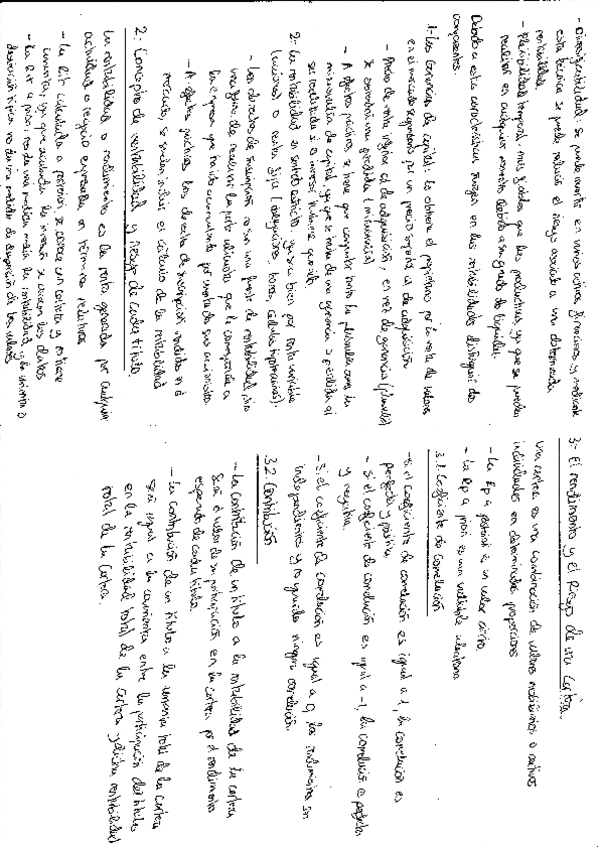 - Diversificabilidad: se puede invertir en varios activos financieros y mediante
esta técnica se puede reducir el riesgo asociado a una determinada
rentabilidad.
- Flexibilidad temporal, más rápidas que las productivas, ya que se pueden
realizar en cualquier momento debido a su grado de liquidez.
Debido a esta características surgen en las rentabilidades distinguir dos
componentes:
1- Las Ganancias de capital: La obtiene el propietario por la venta de valores
en el mercado secundario por un precio superior al de adquisición
- Precio de venta inferior al de adquisición, en vez de ganancia (plusvalía)
se obtendrá una pérdida (minusvalía)
- A efectos prácticos, se tiene que computar tanto la plusvalía como la
minusvalía de capital, ya que se trata de una ganancia o pérdida
se realizada o no
2- La rentabilidad en sentido estricto, ya sea bien por renta variable
(acciones) o renta fija (obligaciones, bonos, cédulas hipotecarias).
- Los derechos de suscripción no son una fuente de rentabilidad, sino
una forma de realizar la parte alícuota que le corresponde a
la empresa que ha ido acumulando por cuenta de sus accionistas.
- A efectos prácticos los derechos de suscripción vendidos en el
mercado, se suelen incluir el cálculo de la rentabilidad
2- Concepto de rentabilidad y riesgo de cada título.
La rentabilidad o rendimiento es la renta generada por cualquier
actividad o negocio expresada en términos relativos
- La Rit calculada a posteriori se conoce con certeza y se hace
ya que la inversión se conocen los datos
- La Rit a priori, es de una medida media la rentabilidad y la varianza o
desviación típica
3- El rendimiento y el Riesgo de una Cartera.
Una cartera es una combinación de valores mobiliarios o activos
individuales en determinadas proporciones
- La Rp a posteriori es un valor cierto.
- La Rp a priori es una variable aleatoria
3.1. Coeficiente de Correlación
- Si el coeficiente de correlación es igual a 1, la correlación es
perfecta y positiva.
- Si el coeficiente de correlación es igual a -1, la correlación es perfecta
y negativa.
- Si el coeficiente de correlación es igual a 0, los rendimientos son
independientes y no guardan ninguna correlación.
3.2. Contribución
- La contribución de un título a la rentabilidad de la cartera
será el valor de su participación en la cartera por el rendimiento
esperado de cada título.
- La contribución de un título a la varianza total de la cartera
será igual a la covarianza entre la participación del título
en la rentabilidad total de la cartera y dicha rentabilidad
total de la Cartera.